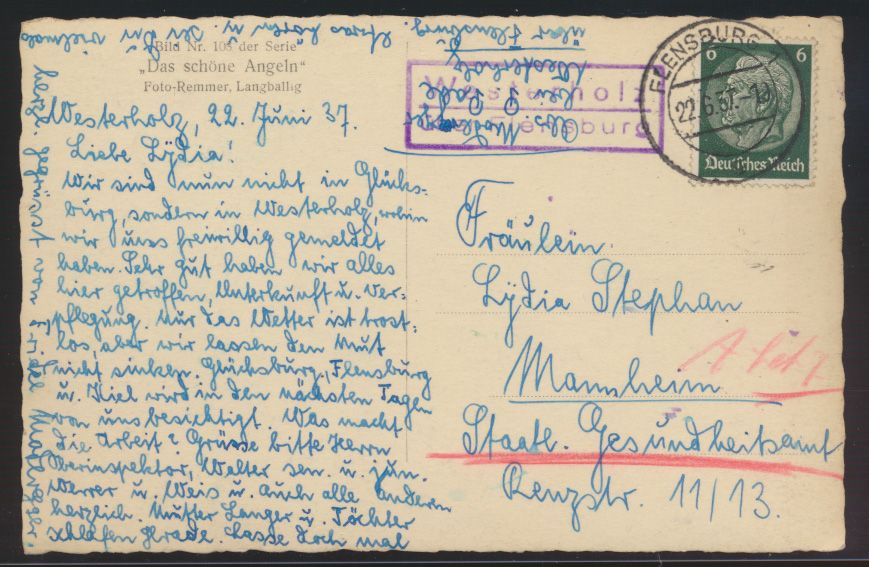 Bild Nr. 108 der Serie
„Das schöne Angeln“
Foto-Remmer, Langballig
Westerholz, 22. Juni 37.
Liebe Lÿdia!
Wir sind nun nicht in Glücks-
burg, sondern in Westerholz, wohin
wir uns freiwillig gemeldet
haben. Sehr gut haben wir alles
hier getroffen, Unterkunft u. Ver-
pflegung. Nur das Wetter ist trost-
los, aber wir lassen den Mut
nicht sinken. Glücksburg, Flensburg
u. Kiel wird in den nächsten Tagen
von uns besichtigt. Was macht
die Arbeit? Grüsse bitte Herrn
Oberinspektor, Walter sen. u. jun.
Werrer u. Weis u. auch alle anderen
herzlich. Mutter Langer u. Töchter
schlafen grade. Lasse doch mal
etwas hören u. sei Du vielmals
herzl. gegrüsst von Friedel
Abs.
bei
Westerholz
über Flensburg.
Westerholz
Flensburg
FLENSBURG
22.6.37.
6
6
Deutsches Reich
Fräulein
Lÿdia Stephan
Mannheim
Staatl. Gesundheitsamt
Renzstr. 11/13.